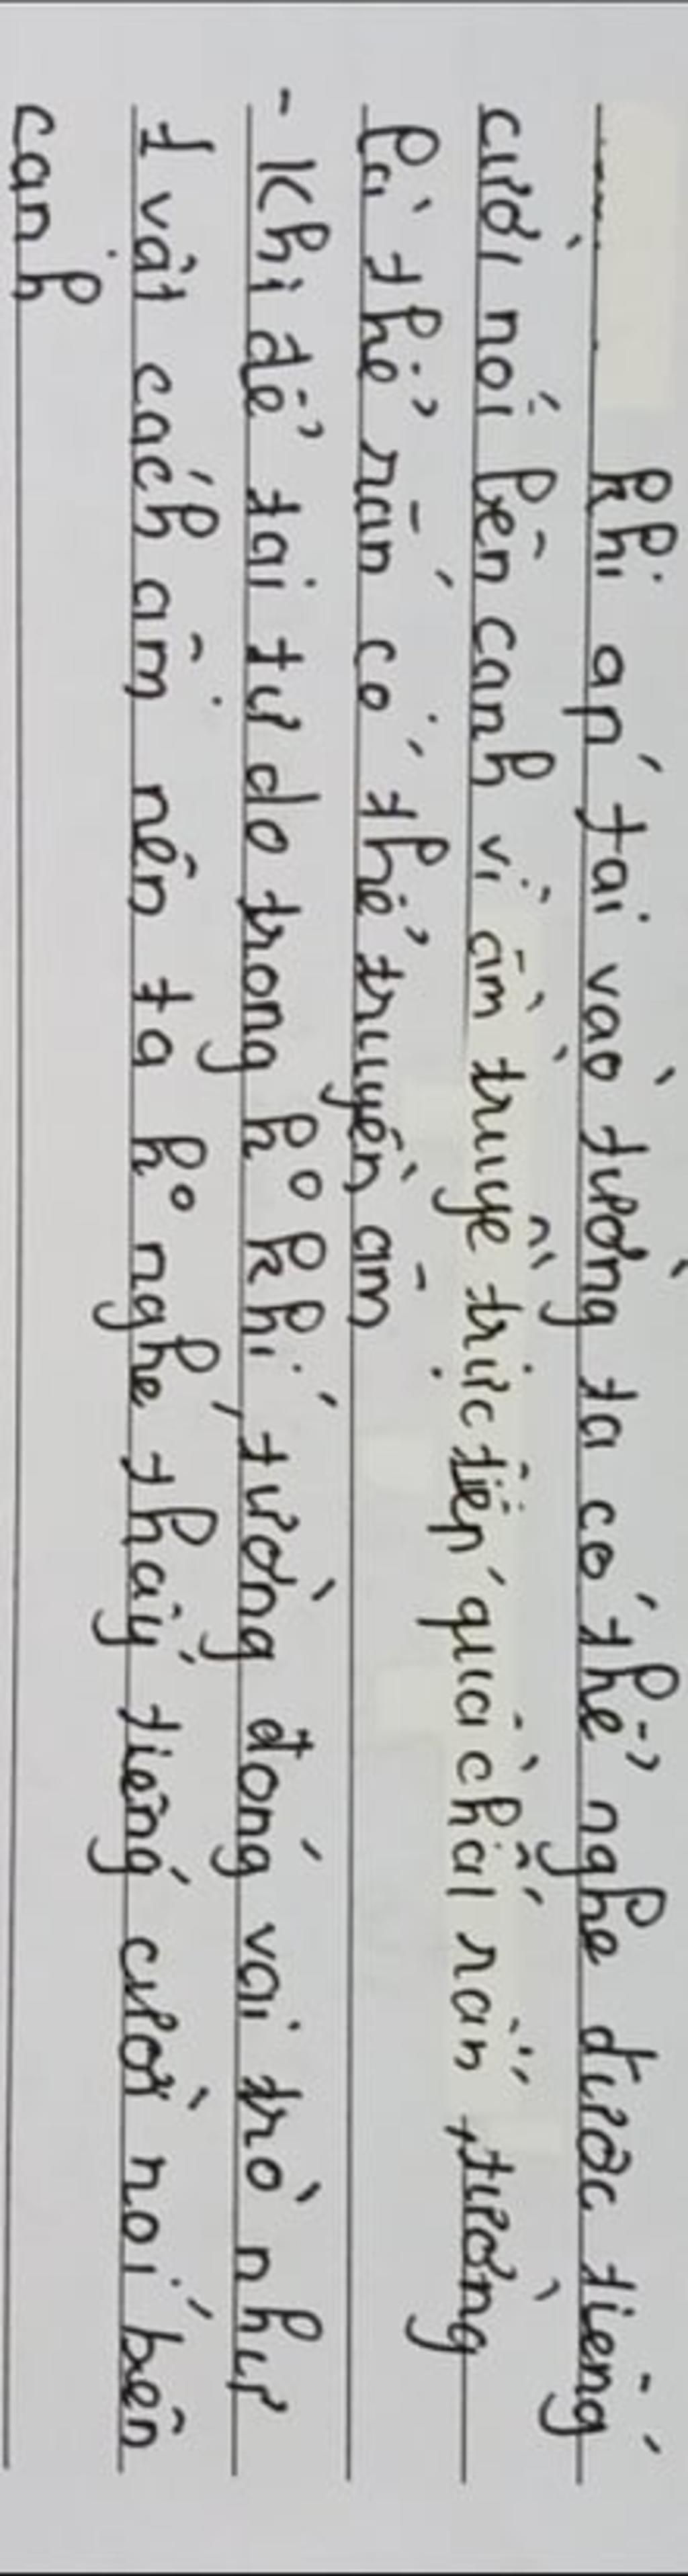 khi áp tai vào tường ta có thể nghe được tiếng
cười nói bên cạnh vì âm truyề trực tiếp qua chất rắn, tường
là thể rắn có thể truyền âm
- Khi để tai tự do trong ko khí, tường đóng vai trò như
1 vật cách âm nên ta ko nghe thấy tiếng cười nói bên
cạnh